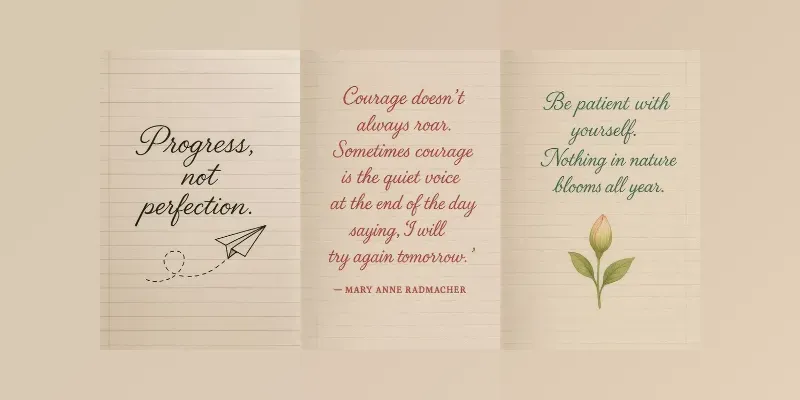 Progress,
not
perfection.
Courage doesn't
always roar.
Sometimes courage
is the quiet voice
at the end of the day
saying, 'I will
try again tomorrow.'
— MARY ANNE RADMACHER
Be patient with
yourself.
Nothing in nature
blooms all year.